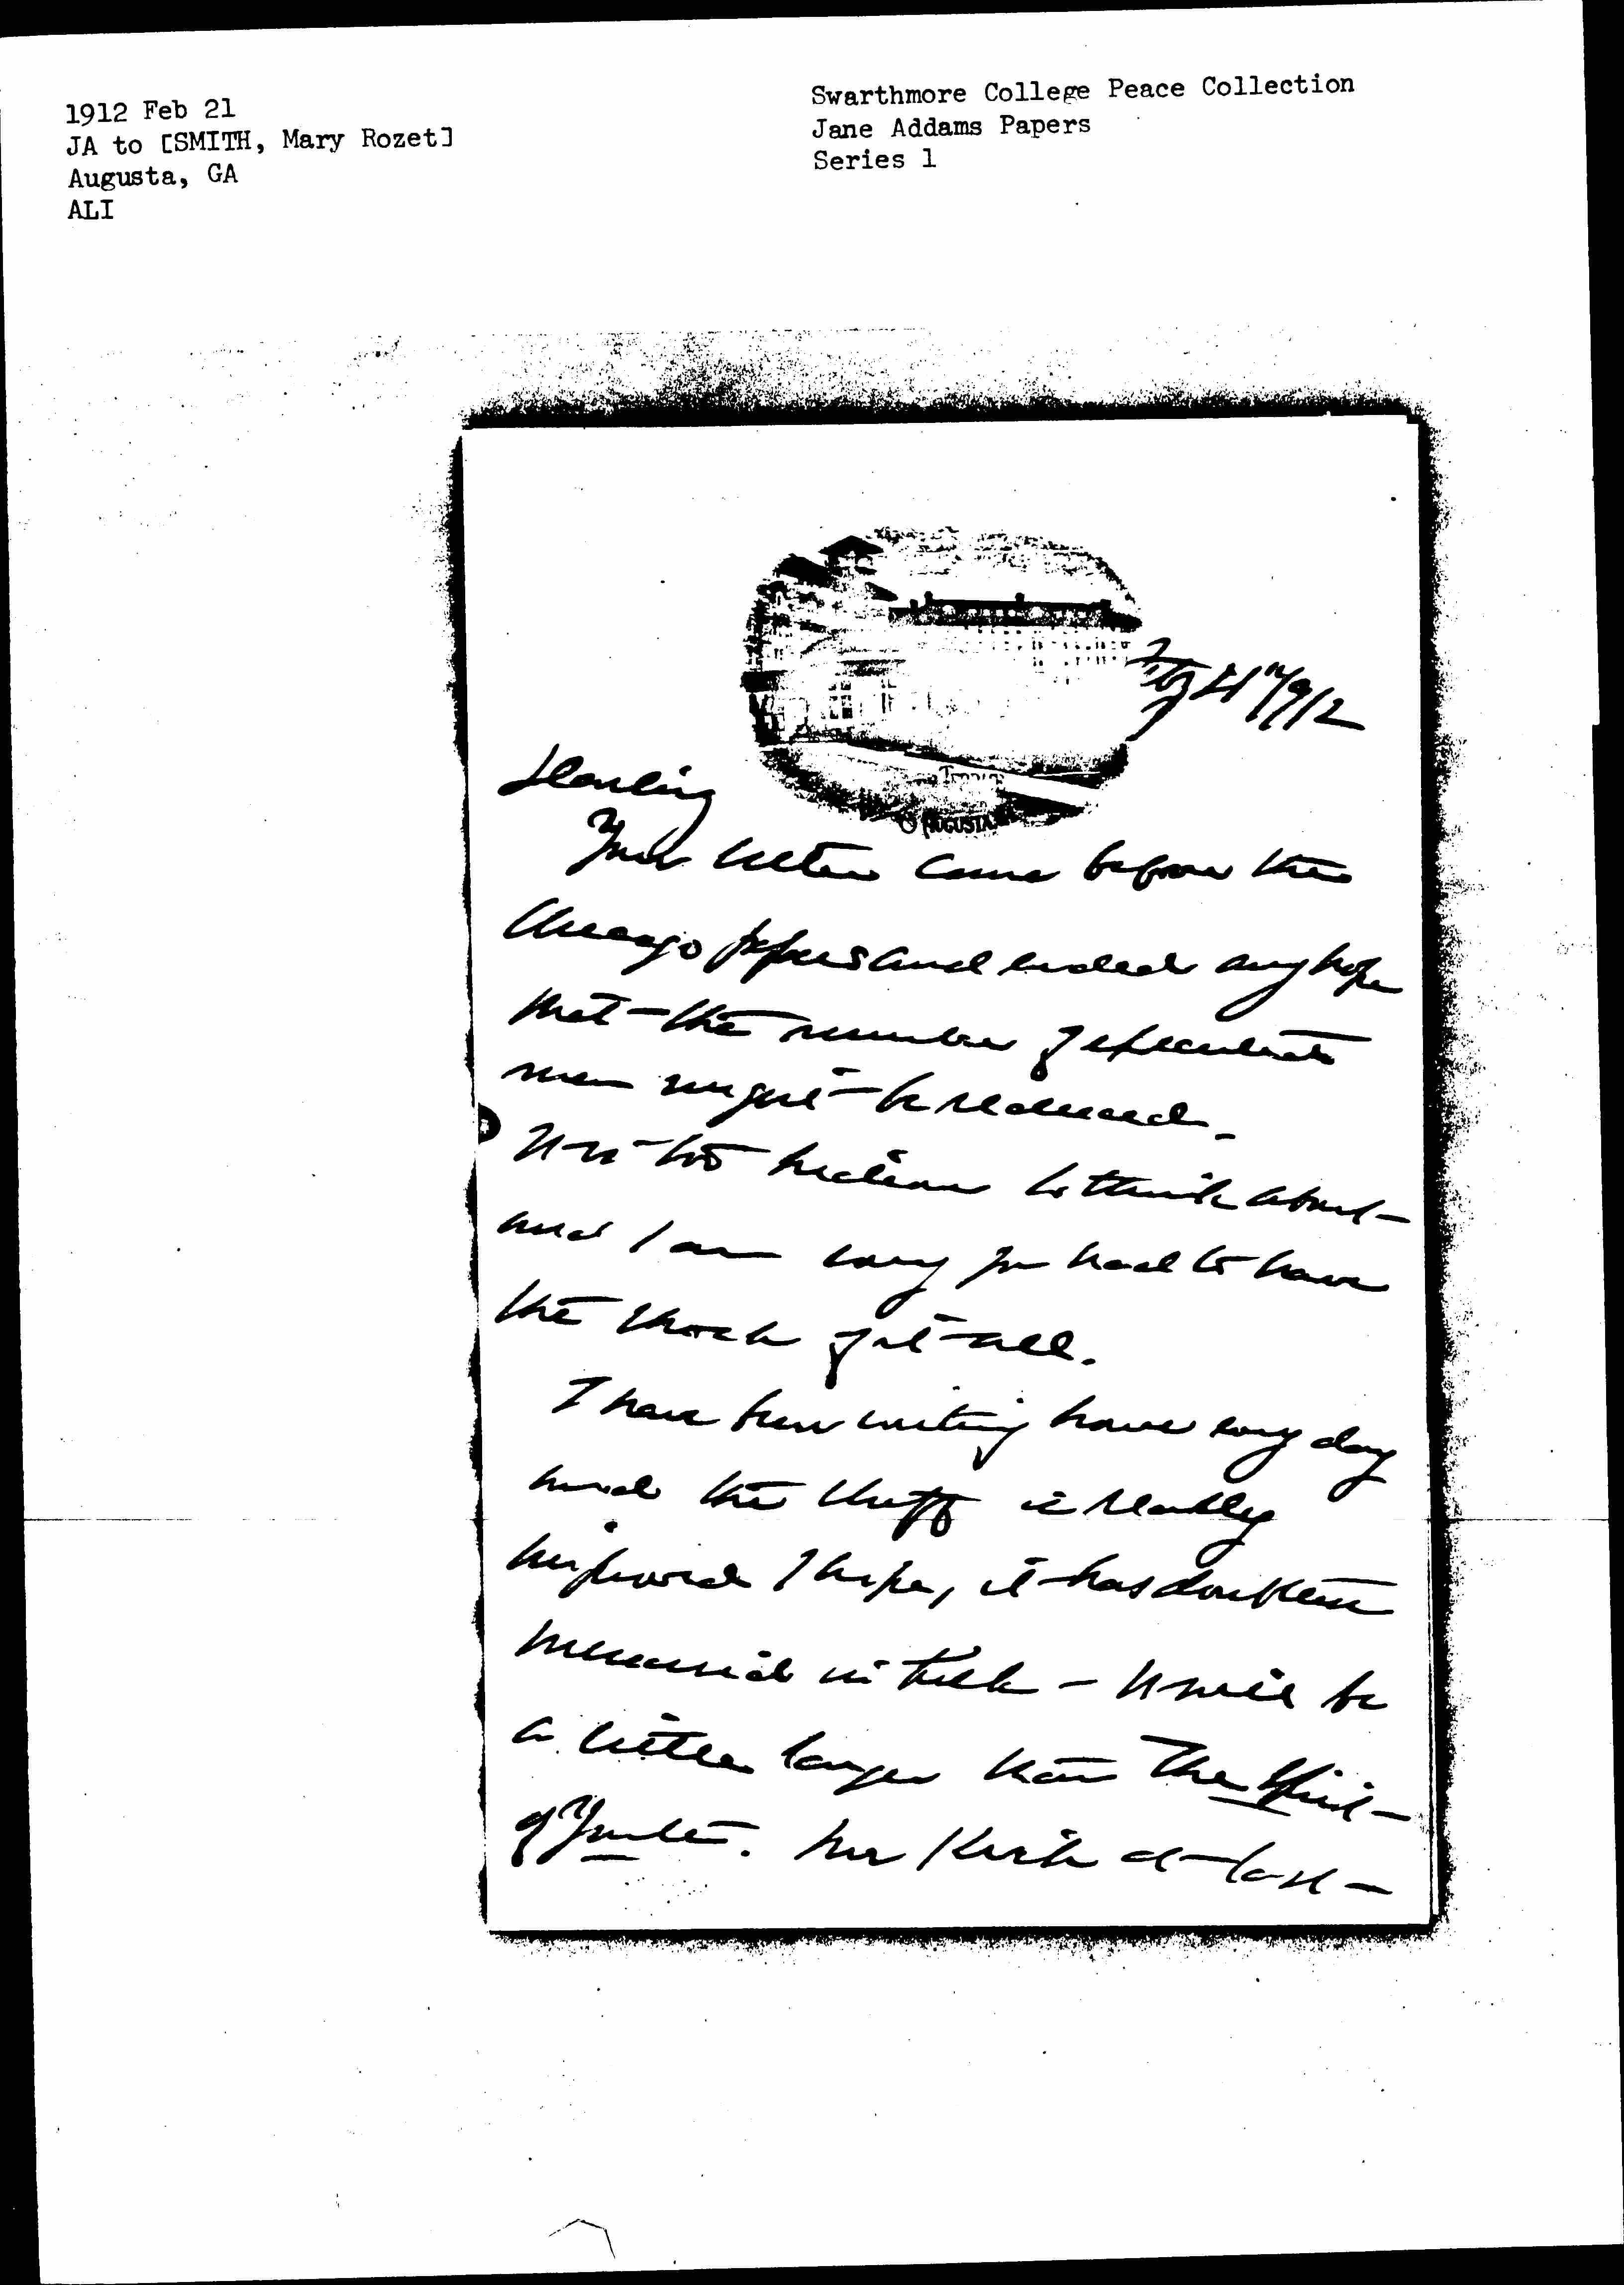 1912 Feb 21
JA to [SMITH, Mary Rozet]
Augusta, GA
ALI
Swarthmore College Peace Collection
Jane Addams Papers
Series 1
AUGUSTA
Feb 21" 1912
Darling
Your letter came before the
Chicago papers and ended any hope
that the number of executed
men might be reduced.
It is too hideous to think about
and I am sorry you had to have
the shock of it all.
I have been writing hours every day
and the stuff is really
improved I hope, it has doubled
in bulk - It will be
a little larger than The Spirit
of Youth. Mr Kirk at last